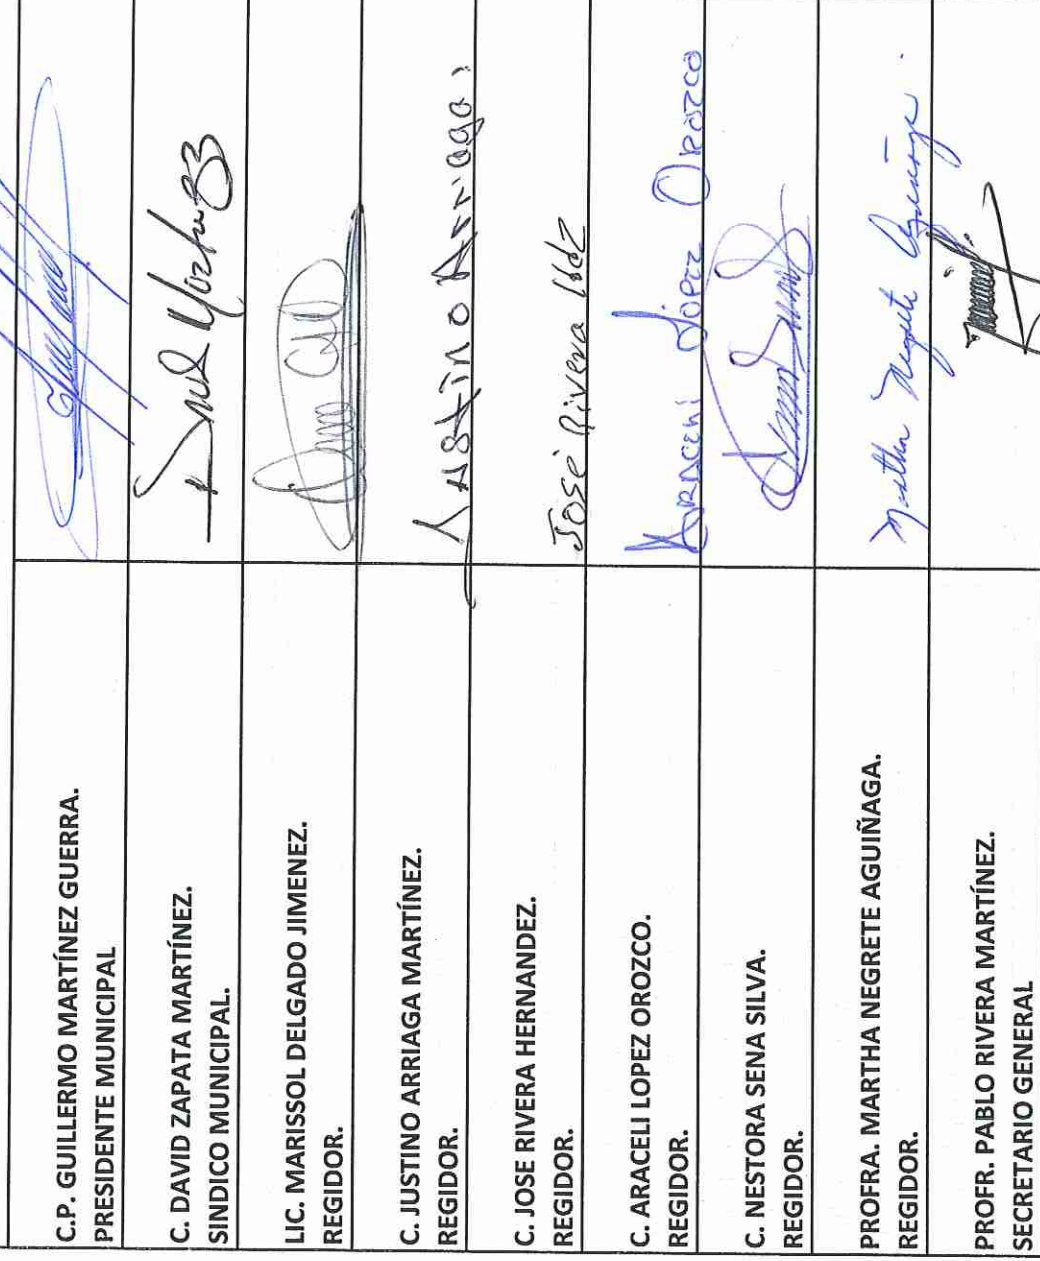 C.P. GUILLERMO MARTÍNEZ GUERRA.
PRESIDENTE MUNICIPAL
C. DAVID ZAPATA MARTÍNEZ.
SINDICO MUNICIPAL.
LIC. MARISSOL DELGADO JIMENEZ.
REGIDOR.
C. JUSTINO ARRIAGA MARTÍNEZ.
REGIDOR.
Justino Arriaga
C. JOSE RIVERA HERNANDEZ.
REGIDOR.
José Rivera
C. ARACELI LOPEZ OROZCO.
REGIDOR.
Araceli López Orozco
C. NESTORA SENA SILVA.
REGIDOR.
PROFRA. MARTHA NEGRETE AGUIÑAGA.
REGIDOR.
Martha Negrete Aguiñaga.
PROFR. PABLO RIVERA MARTÍNEZ.
SECRETARIO GENERAL